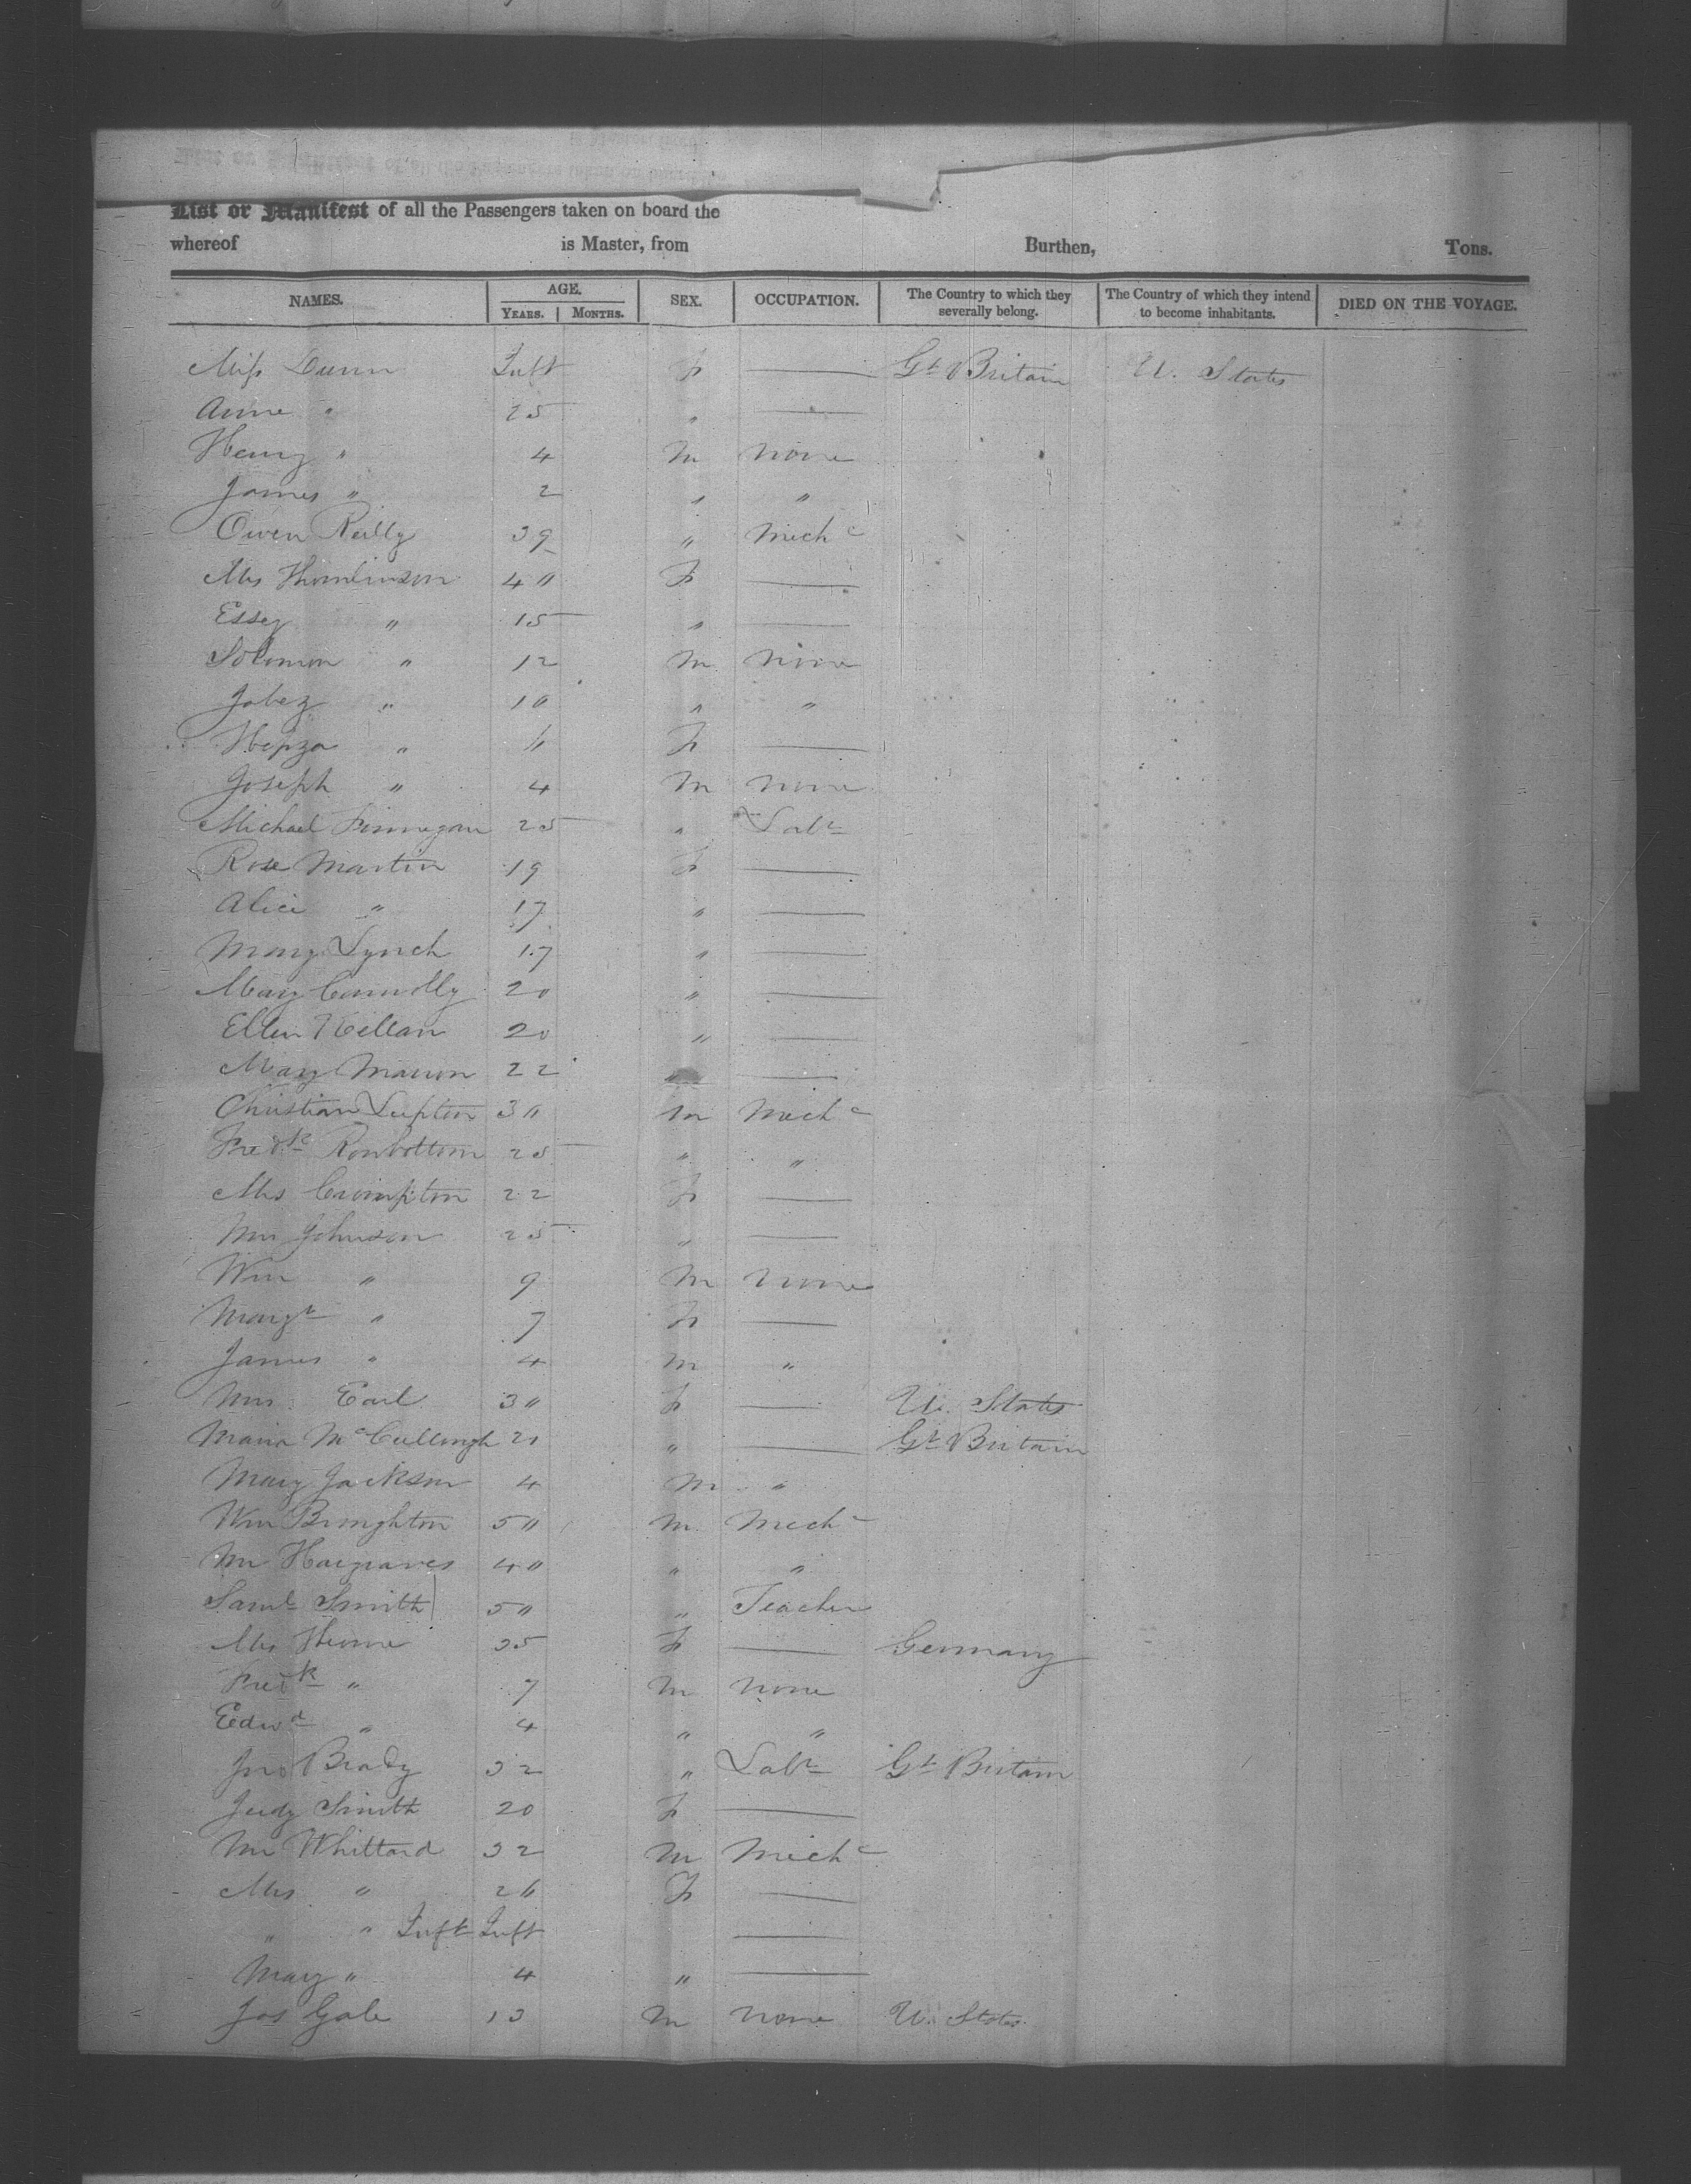 List or Manifest of all the Passengers taken on board the
whereof is Master, from Burthen, Tons.
NAMES. AGE. YEARS. MONTHS. SEX. OCCUPATION. The Country to which they severally belong. The Country of which they intend to become inhabitants. DIED ON THE VOYAGE.
Miss Dunn Inft F — Gt Britain U. States
Anne " 25 " —
Henry " 4 M none
James " 2 " "
Owen Reilly 39 " Mechc
Mrs Thomlinson 40 F —
Essey " 15 " —
Solomon " 12 M none
Jabez " 10 " "
Hepza " 6 F —
Joseph " 4 M none
Michael Finnegan 25 " Labr
Rose Martin 19 F —
Alice " 17 " —
Mary Lynch 17 " —
Mary Connolly 20 " —
Ellen 20 " —
Mary 22 " —
Christian Lupton 30 M Mechc
Fredk Rowbottom 25 " "
Mrs Crompton 22 F —
Mrs Johnson 25 " —
Wm " 9 M none
Margt " 7 F —
James " 4 M "
Mrs Earl 30 F — U. States
Maria McCullough 21 " — Gt Britain
Mary Jackson 4 M "
Wm Broughton 50 M Mechc
Mr Hargraves 40 " "
Saml Smith 50 " Teacher
Mrs 35 F — Germany
Fredk " 7 M none
Edwd " 4 " "
Jno Brady 32 " Labr Gt Britain
Judy Smith 20 F —
Mr Whittard 32 M Mechc
Mrs " 26 F —
" " Inft Inft —
Mary " 4 " —
Jos Gale 13 M none U. States